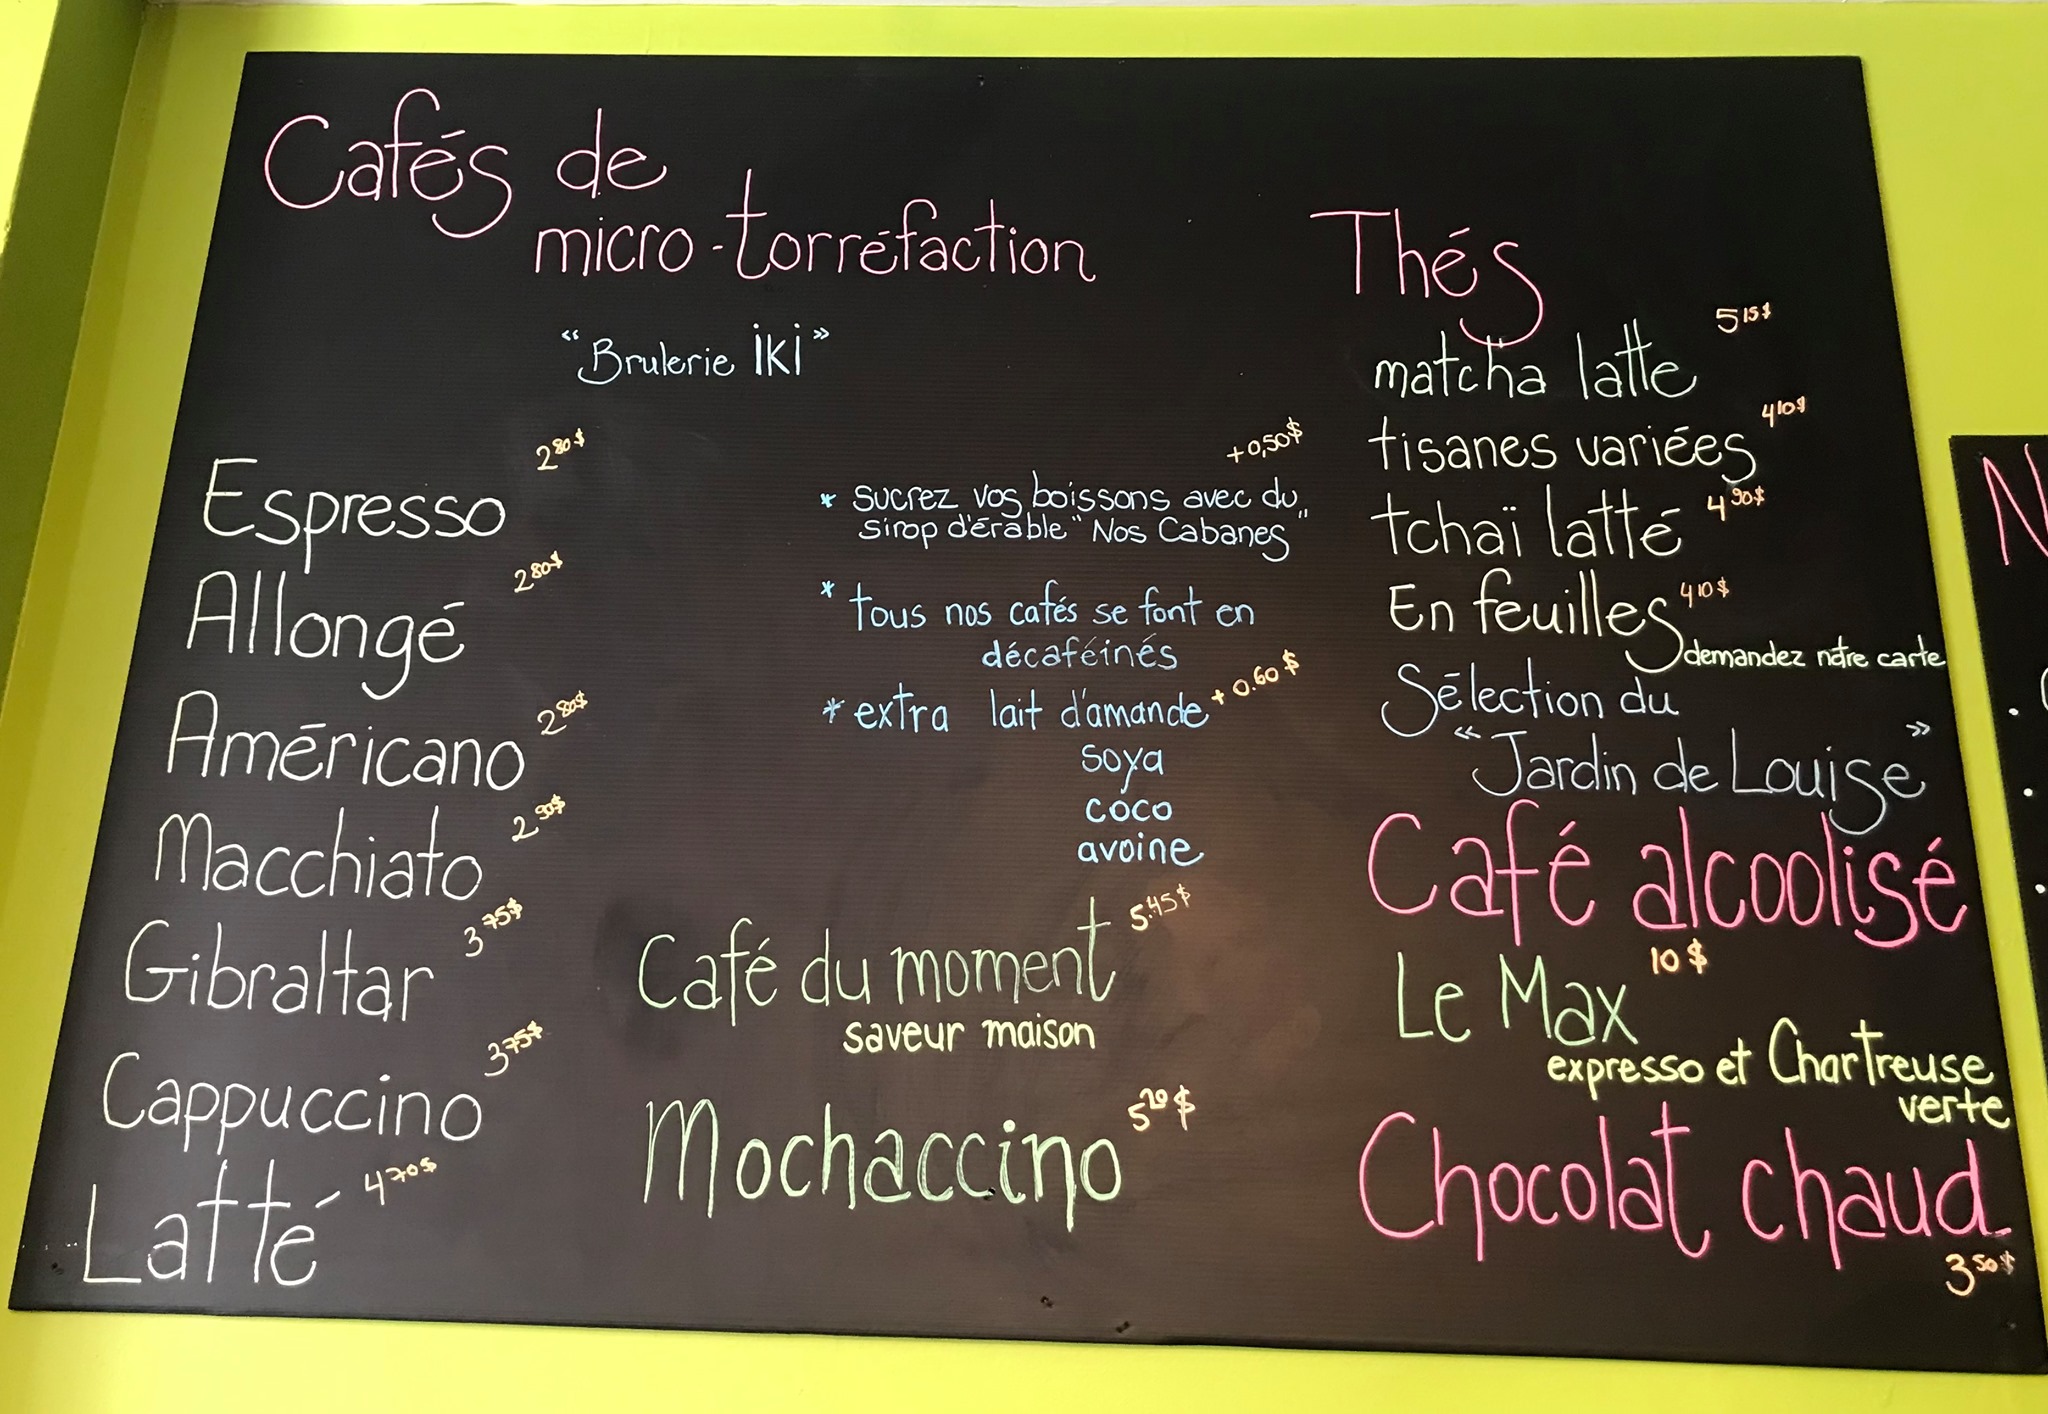 Cafés de
micro-torréfaction
"Brulerie iki"
Espresso 2 80 $
Allongé 2 80 $
Américano 2 80 $
Macchiato 2 90 $
Gibraltar 3 75 $
Cappuccino 3 75 $
Latté 4 70 $
+0,50 $
* sucrez vos boissons avec du
sirop d'érable "Nos Cabanes"
* tous nos cafés se font en
décaféinés
* extra lait d'amande + 0.60 $
soya
coco
avoine
Café du moment 5.45 $
saveur maison
Mochaccino 5 20 $
Thés
matcha latte 5 15 $
tisanes variées 4 10 $
tchaï latté 4 90 $
En feuilles 4 10 $
demandez notre carte
Sélection du
"Jardin de Louise"
Café alcoolisé
Le Max 10 $
expresso et Chartreuse
verte
Chocolat chaud
3 50 $
N